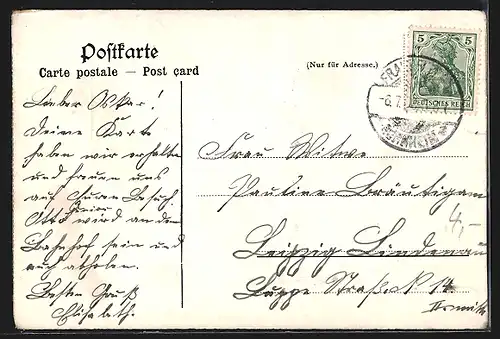 Postkarte
Carte postale — Post card
(Nur für Adresse.)
5 5
DEUTSCHES REICH
Lieber Oskar!
Deine Karte
haben wir erhalten
und freuen uns
auf Euren Besuch.
Otto junior wird an dem
Bahnhof sein und
auch abholen.
Besten Gruß
Elisabeth.
Frau Witwe
Pauline Bräutigam
Leipzig Lindenau
Luppe Straße 14
4,-